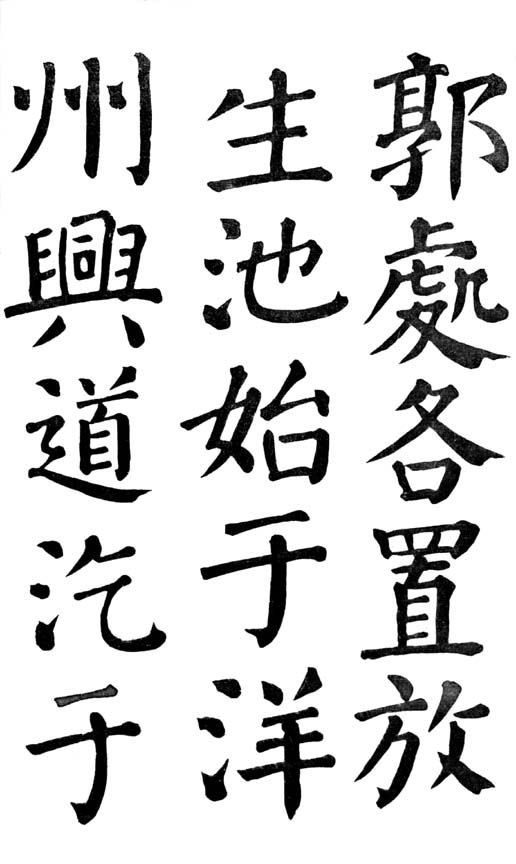 郭處各置放
生池始于洋
州興道汔于